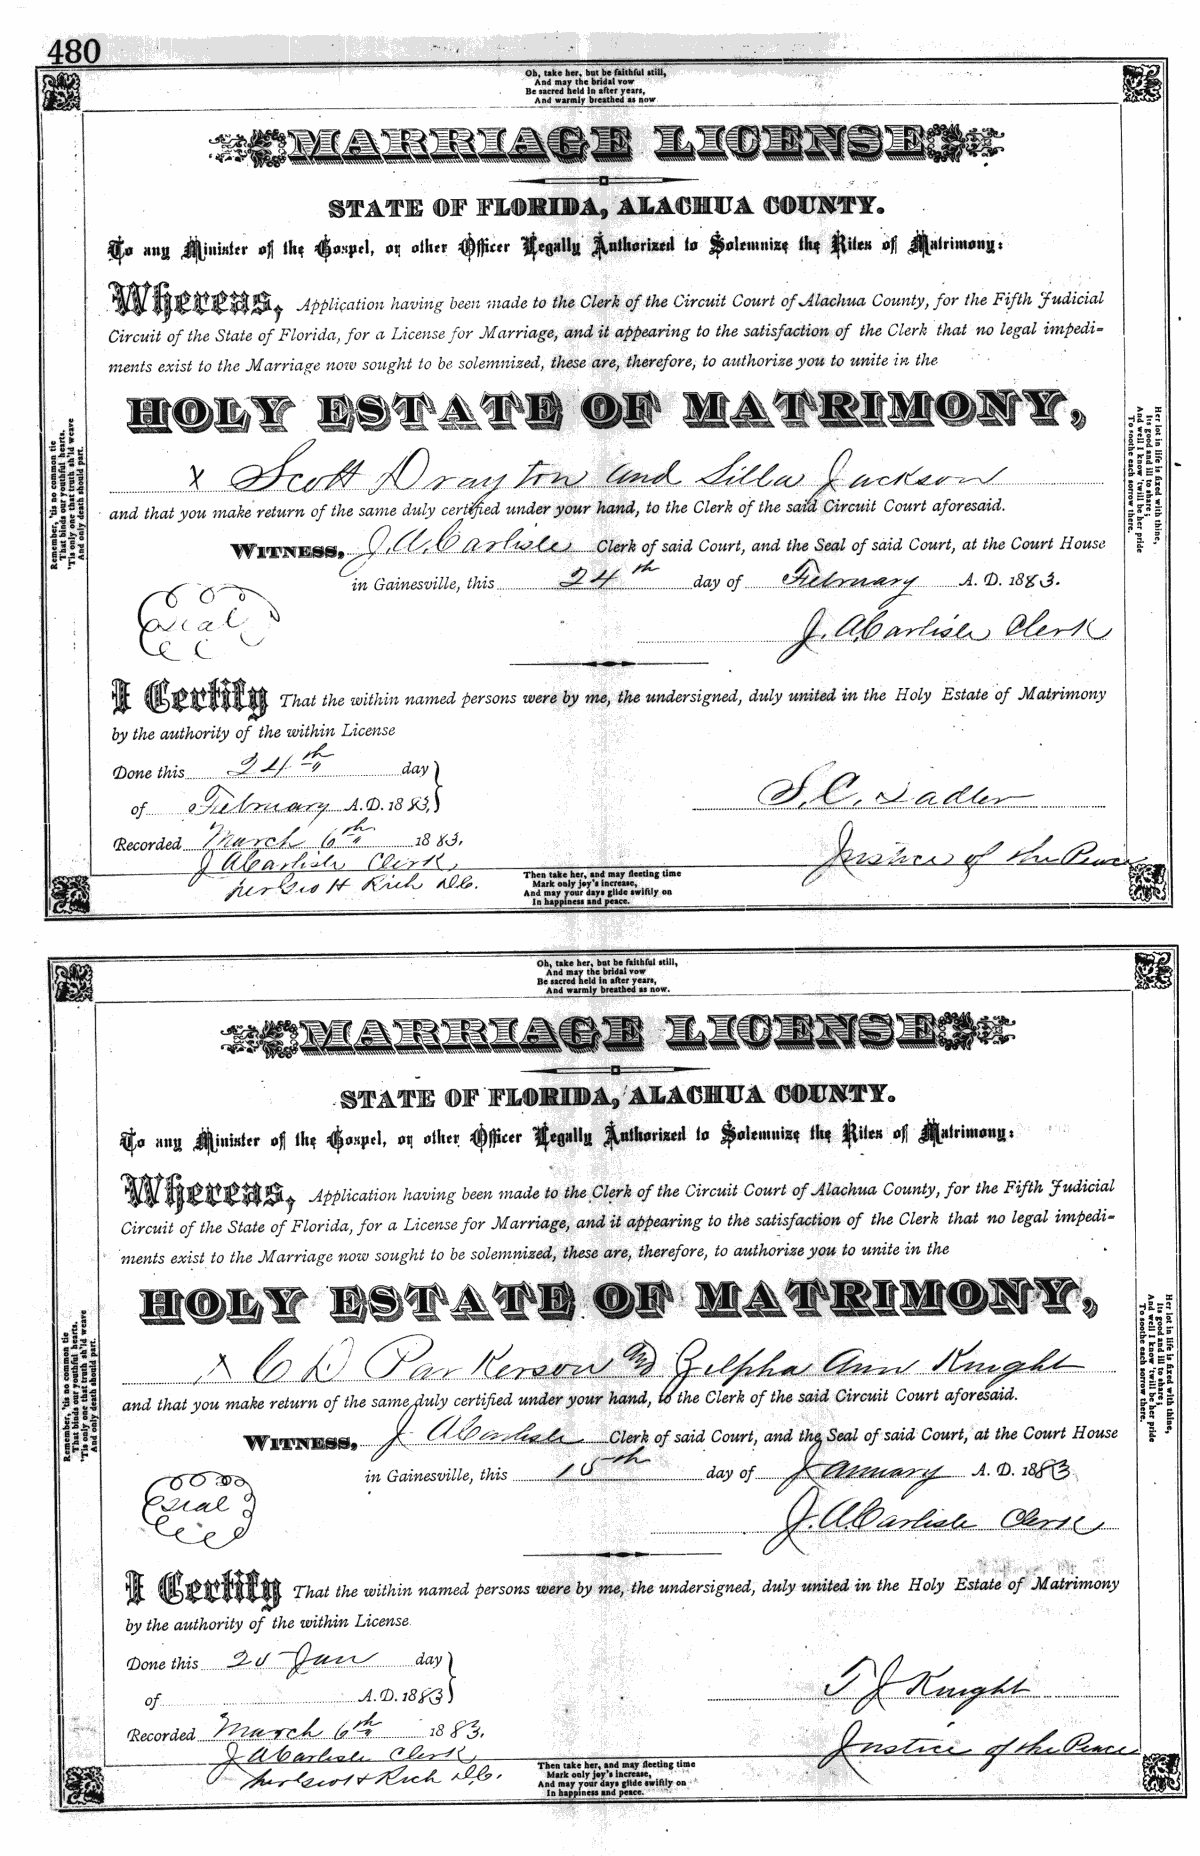 480
Oh, take her, but be faithful still,
And may the bridal vow
Be sacred held in after years,
And warmly breathed as now
MARRIAGE LICENSE
STATE OF FLORIDA, ALACHUA COUNTY.
To any Minister of the Gospel, or other Officer Legally Authorized to Solemnize the Rites of Matrimony:
Whereas, Application having been made to the Clerk of the Circuit Court of Alachua County, for the Fifth Judicial
Circuit of the State of Florida, for a License for Marriage, and it appearing to the satisfaction of the Clerk that no legal impedi-
ments exist to the Marriage now sought to be solemnized, these are, therefore, to authorize you to unite in the
HOLY ESTATE OF MATRIMONY,
x Scott Drayton and Silla Jackson
and that you make return of the same duly certified under your hand, to the Clerk of the said Circuit Court aforesaid.
WITNESS, J. A. Carlisle Clerk of said Court, and the Seal of said Court, at the Court House
in Gainesville, this 24th day of February A. D. 1883.
Seal
J. A. Carlisle Clerk
I Certify That the within named persons were by me, the undersigned, duly united in the Holy Estate of Matrimony
by the authority of the within License
Done this 24th day
of February A. D. 1883.
S. C. Sadler
Recorded March 6th 1883.
Justice of the Peace
J A Carlisle Clerk
per Geo H Rich D.C.
Remember, 'tis no common tie
That binds our youthful hearts.
'Tis only one that truth sh'ld weave
And only death should part.
Her lot in life is fixed with thine,
Its good and ill to share;
And well I know 'twill be her pride
To soothe each sorrow there.
Then take her, and may fleeting time
Mark only joy's increase,
And may your days glide swiftly on
In happiness and peace.
Oh, take her, but be faithful still,
And may the bridal vow
Be sacred held in after years,
And warmly breathed as now.
MARRIAGE LICENSE
STATE OF FLORIDA, ALACHUA COUNTY.
To any Minister of the Gospel, or other Officer Legally Authorized to Solemnize the Rites of Matrimony:
Whereas, Application having been made to the Clerk of the Circuit Court of Alachua County, for the Fifth Judicial
Circuit of the State of Florida, for a License for Marriage, and it appearing to the satisfaction of the Clerk that no legal impedi-
ments exist to the Marriage now sought to be solemnized, these are, therefore, to authorize you to unite in the
HOLY ESTATE OF MATRIMONY,
x C D Parkerson and Zilpha Ann Knight
and that you make return of the same duly certified under your hand, to the Clerk of the said Circuit Court aforesaid.
WITNESS, J A Carlisle Clerk of said Court, and the Seal of said Court, at the Court House
in Gainesville, this 15th day of January A. D. 1883
Seal
J. A. Carlisle Clerk
I Certify That the within named persons were by me, the undersigned, duly united in the Holy Estate of Matrimony
by the authority of the within License
Done this 20 Jan day
of A. D. 1883
T J Knight
Recorded March 6th 1883.
Justice of the Peace
J A Carlisle Clerk
per Geo H Rich D.C.
Remember, 'tis no common tie
That binds our youthful hearts.
'Tis only one that truth sh'ld weave
And only death should part.
Her lot in life is fixed with thine,
Its good and ill to share;
And well I know 'twill be her pride
To soothe each sorrow there.
Then take her, and may fleeting time
Mark only joy's increase,
And may your days glide swiftly on
In happiness and peace.